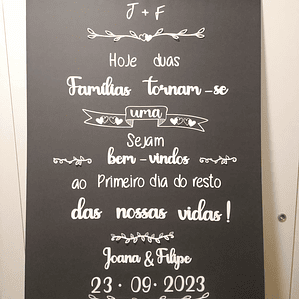 J + F
Hoje duas
Famílias tornam-se
uma
Sejam
bem-vindos
ao Primeiro dia do resto
das nossas vidas!
Joana & Filipe
23 · 09 · 2023